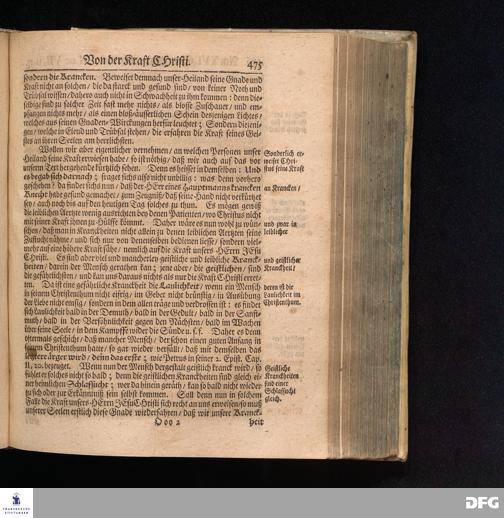 Von der Kraft CHristi. 475
sondern die Krancken. Beweiset demnach unser Heiland seine Gnade und
Kraft nicht an solchen / die da starck und gesund sind / von keiner Noth und
Trübsal wissen / dahero auch nicht in Schwachheit zu ihm kommen : denn die-
selbige sind zu solcher Zeit fast mehr nichts / als blosse Zuschauer / und em-
pfangen nichts mehr / als einen bloß äusserlichen Schein desjenigen Lichtes /
welches aus seinen Gnaden-Wirckungen herfür leuchtet ; Sondern diejeni-
gen / welche in Elend und Trübsal stehen / die erfahren die Kraft seines Gei-
stes an ihren Seelen am herrlichsten.
Wollen wir aber eigentlicher vernehmen / an welchen Personen unser
Heiland seine Kraft erwiesen habe / so ist nöthig / daß wir auch auf das vor
unserm Text hergehende kürtzlich sehen. Denn es heisset in demselben : Und
es begab sich darnach ; fraget sichs also nicht unbillig : was denn vorhero
geschehen? da findet sichs nun / daß der HErr eines Hauptmanns krancken
Knecht habe gesund gemachet / zum Zeugniß / daß seine Hand nicht verkürtzet
sey / auch noch bis auf den heutigen Tag solches zu thun. Es mögen gewiß
die leiblichen Aertzte wenig ausrichten bey denen Patienten / wo Christus nicht
mit seiner Kraft ihnen zu Hülffe kömmt. Daher wäre es nun wohl zu wün-
schen / daß man in Kranckheiten nicht allein zu denen leiblichen Aertzten seine
Zuflucht nähme / und sich nur von denenselben bedienen liesse / sondern viel-
mehr auf eine höhere Kraft sähe / nemlich auf die Kraft unsers HErrn JESu
Christi. Es sind aber viel und mancherley geistliche und leibliche Kranck-
heiten / darein der Mensch gerathen kan ; jene aber / die geistlichen / sind
die gefährlichsten / und kan uns daraus nichts als nur die Kraft CHristi erret-
ten. Da ist eine gefährliche Kranckheit die Laulichkeit / wenn ein Mensch
in seinem Christenthum nicht eifrig / im Gebet nicht brünstig / in Ausübung
der Liebe nicht emsig / sondern in dem allen träge und verdrossen ist : es findet
sich Laulichkeit bald in der Demuth / bald in der Gedult / bald in der Sanft-
muth / bald in der Versöhnlichkeit gegen den Nächsten / bald im Wachen
über seine Seele / in dem Kampff wider die Sünde u. s. f. Daher es denn
oftermals geschicht / daß mancher Mensch / der schon einen guten Anfang in
seinem Christenthum hatte / so gar wieder verfällt / daß mit demselben das
letztere ärger wird / denn das erste ; wie Petrus in seiner 2. Epist. Cap.
II, 20. bezeuget. Wenn nun der Mensch dergestalt geistlich kranck wird / so
fühlet er solches nicht so bald ; denn die geistlichen Kranckheiten sind gleich ei-
ner heimlichen Schlafsucht ; wer da hinein geräth / kan so bald nicht wieder
zu sich oder zur Erkänntniß sein selbst kommen. Soll denn nun in solchem
Falle die Kraft unsers HErrn JEsu CHristi sich recht an uns erweisen / so muß
unserer Seelen erstlich diese Gnade wiederfahren / daß wir unsere Kranck-
Ooo 2 heit
Sonderlich er-
weiset Chri-
stus seine Kraft
an Krancken /
und zwar in
leiblicher
und geistlicher
Kranckheit /
deren ist die
Laulichkeit im
Christenthum.
Geistliche
Kranckheiten
sind einer
Schlafsucht
gleich.
FRANCKESCHE
STIFTUNGEN
DFG